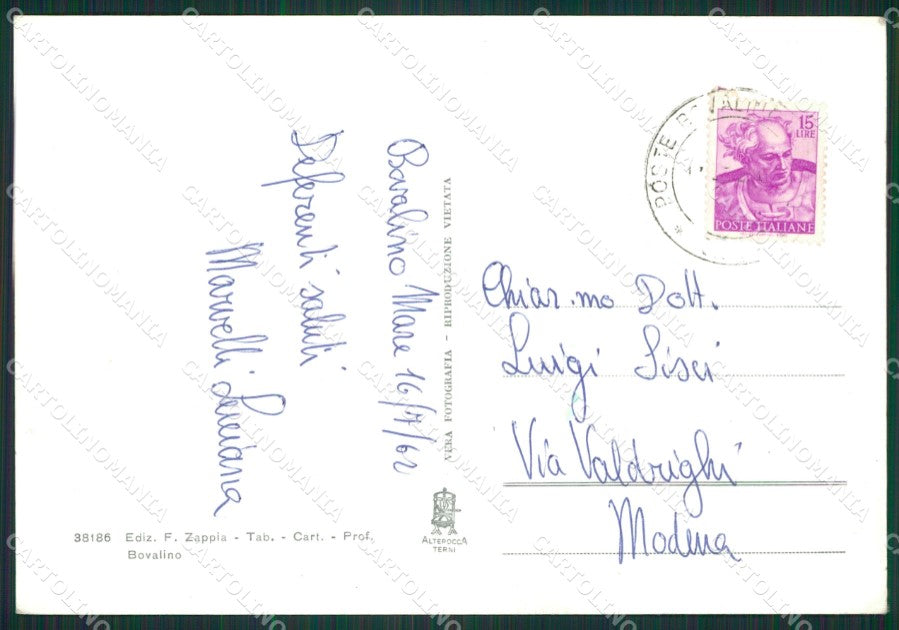 Bovalino Mare 16/7/62
Deferenti saluti
Marvelli Luciana
VERA FOTOGRAFIA - RIPRODUZIONE VIETATA
POSTE BOVALINO
15
LIRE
POSTE ITALIANE
Chiar.mo Dott.
Luigi Sisci
Via Valdrighi
Modena
38186 Ediz. F. Zappia - Tab. - Cart. - Prof.
Bovalino
ALTEROCCA
TERNI
CARTOLINOMANIA